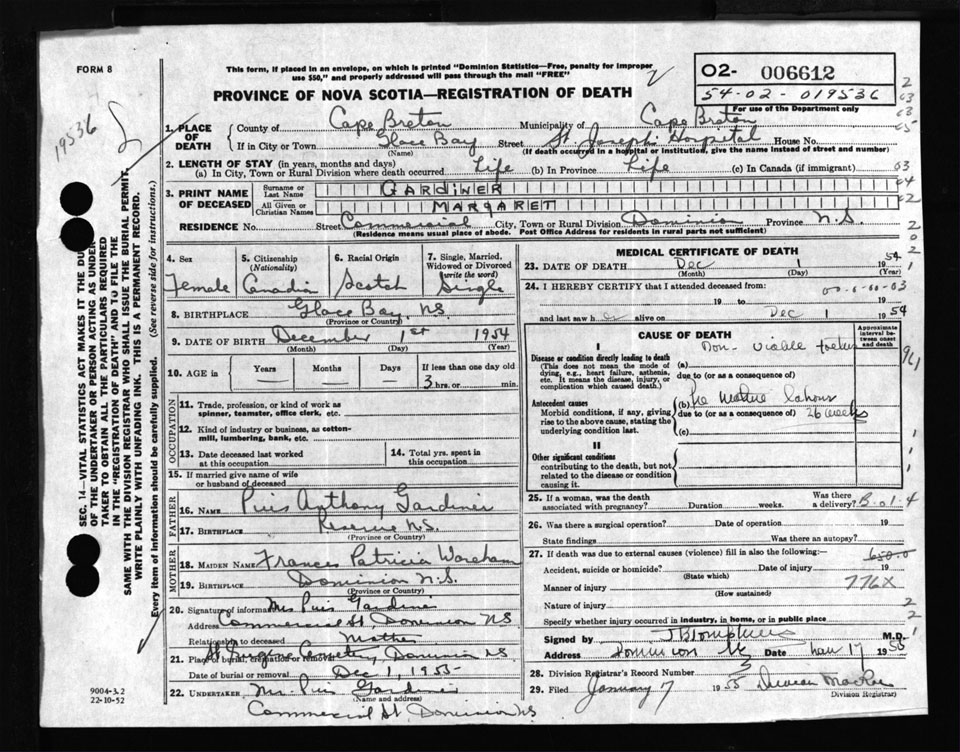 FORM 8
This form, if placed in an envelope, on which is printed "Dominion Statistics—Free, penalty for improper
use $50," and properly addressed will pass through the mail "FREE"
02- 006612
54-02-019536
For use of the Department only
PROVINCE OF NOVA SCOTIA—REGISTRATION OF DEATH
19536
1. PLACE OF DEATH
County of Cape Breton Municipality of Cape Breton
If in City or Town Glace Bay Street St. Joseph Hospital House No.
(Name) (If death occurred in a hospital or institution, give the name instead of street and number)
2. LENGTH OF STAY (in years, months and days)
(a) In City, Town or Rural Division where death occurred Life (b) In Province Life (c) In Canada (if immigrant)
3. PRINT NAME OF DECEASED
Surname or Last Name GARDINER
All Given or Christian Names MARGARET
RESIDENCE No. Street Commercial City, Town or Rural Division Dominion Province N.S.
(Residence means usual place of abode. Post Office Address for residents in rural parts not sufficient)
4. Sex 5. Citizenship (Nationality) 6. Racial Origin 7. Single, Married, Widowed or Divorced (write the word)
Female Canadian Scotch Single
8. BIRTHPLACE Glace Bay, N.S.
(Province or Country)
9. DATE OF BIRTH December 1st 1954
(Month) (Day) (Year)
10. AGE in Years Months Days If less than one day old
3 hrs. or min.
OCCUPATION
11. Trade, profession, or kind of work as spinner, teamster, office clerk, etc.
12. Kind of industry or business, as cotton-mill, lumbering, bank, etc.
13. Date deceased last worked at this occupation
14. Total yrs. spent in this occupation
15. If married give name of wife or husband of deceased
FATHER
16. NAME Pius Anthony Gardiner
17. BIRTHPLACE Reserve N.S.
(Province or Country)
MOTHER
18. MAIDEN NAME Frances Patricia Wareham
19. BIRTHPLACE Dominion N.S.
(Province or Country)
20. Signature of informant Mrs Pius Gardiner
Address Commercial St, Dominion NS
Relationship to deceased Mother
21. Place of burial, cremation or removal Cemetery, Dominion NS
Date of burial or removal Dec 1, 1955
22. UNDERTAKER Mr. Pius Gardiner
(Name and address)
Commercial St. Dominion NS
MEDICAL CERTIFICATE OF DEATH
23. DATE OF DEATH Dec 1 1954
(Month) (Day) (Year)
24. I HEREBY CERTIFY that I attended deceased from:
19 to 19
and last saw her alive on Dec 1 1954
CAUSE OF DEATH
Approximate interval between onset and death
I
Disease or condition directly leading to death
(This does not mean the mode of dying, e.g., heart failure, asthenia, etc. It means the disease, injury, or complication which caused death.)
(a) Non-viable foetus
due to (or as a consequence of)
Antecedent causes
Morbid conditions, if any, giving rise to the above cause, stating the underlying condition last.
(b) Premature labour
due to (or as a consequence of) 26 weeks
(c)
II
Other significant conditions
contributing to the death, but not related to the disease or condition causing it.
25. If a woman, was the death associated with pregnancy? Duration weeks. Was there a delivery? B-01-4
26. Was there a surgical operation? Date of operation 19
State findings Was there an autopsy?
27. If death was due to external causes (violence) fill in also the following:—
Accident, suicide or homicide? Date of injury 19
(State which)
Manner of injury 776X
(How sustained)
Nature of injury
Specify whether injury occurred in industry, in home, or in public place
Signed by M.D.
Address Dominion Date Jan 17 1955
28. Division Registrar's Record Number 3
29. Filed January 7 1955 Duncan MacRae
Division Registrar
SEC. 14—VITAL STATISTICS ACT MAKES IT THE DUTY
OF THE UNDERTAKER OR PERSON ACTING AS UNDER-
TAKER TO OBTAIN ALL THE PARTICULARS REQUIRED
IN THE "REGISTRATION OF DEATH" AND TO FILE THE
SAME WITH THE DIVISION REGISTRAR WHO SHALL ISSUE THE BURIAL PERMIT.
WRITE PLAINLY WITH UNFADING INK. THIS IS A PERMANENT RECORD.
Every item of information should be carefully supplied. (See reverse side for instructions).
9004-3.2
22-10-52